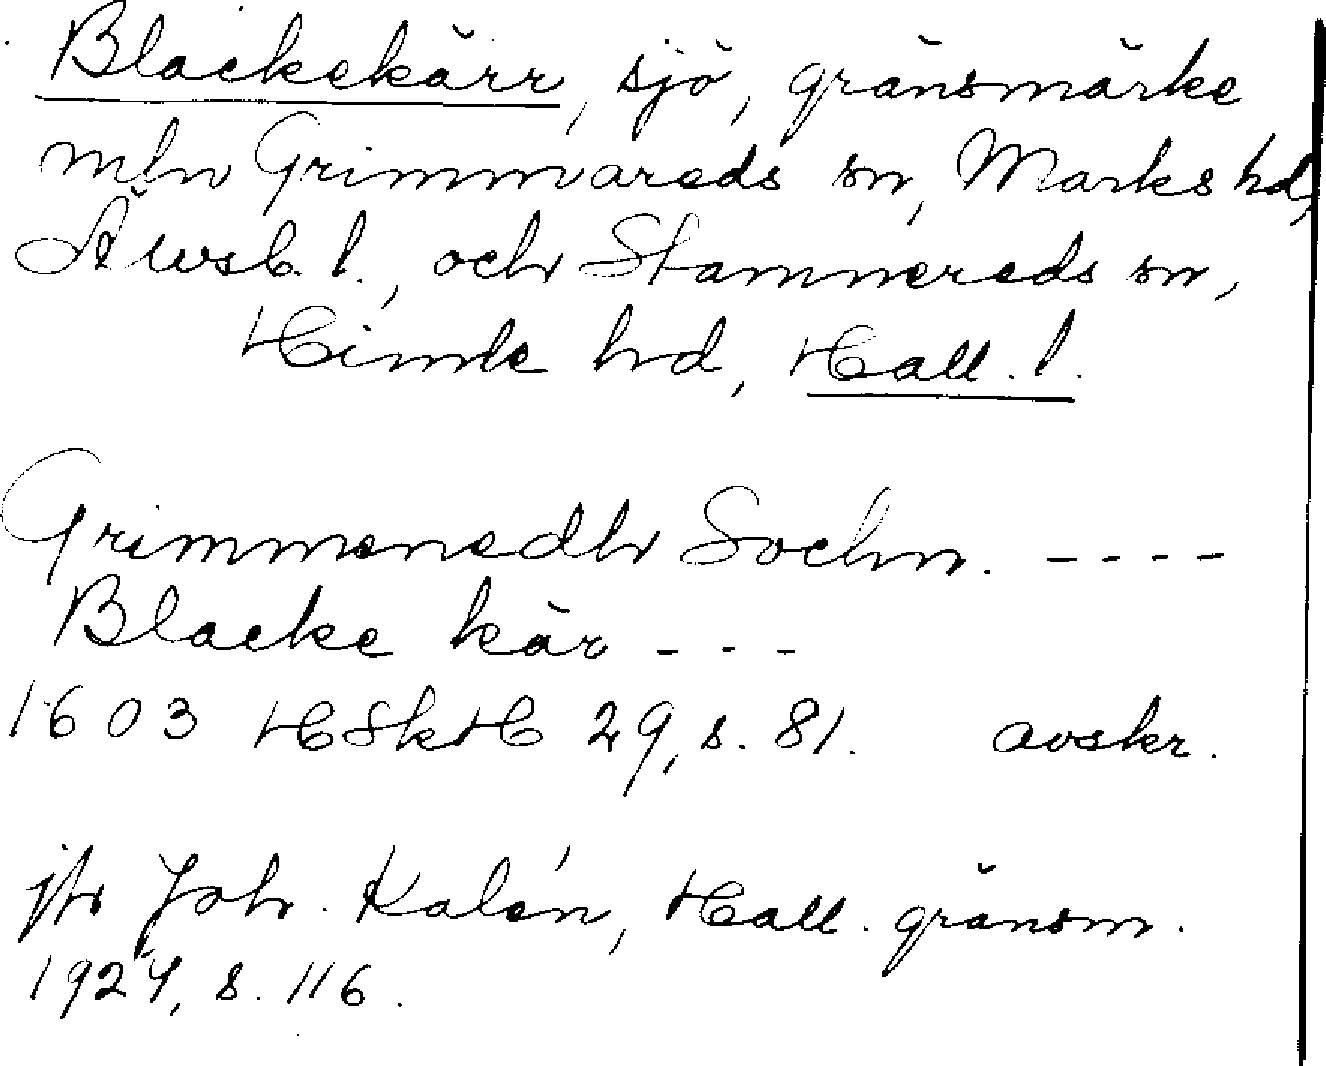 Blackekärr, sjö, gränsmärke
mln Grimmareds sn, Marks hd,
Älvsb. l., och Stamnereds sn,
Himle hd, Hall. l.
Grimmeredh Sochn. ----
Blacke kär ---
1603 HSkH 29, s. 81. avskr.
jfr Joh. Kalén, Hall. gränsm.
1927, s. 116.